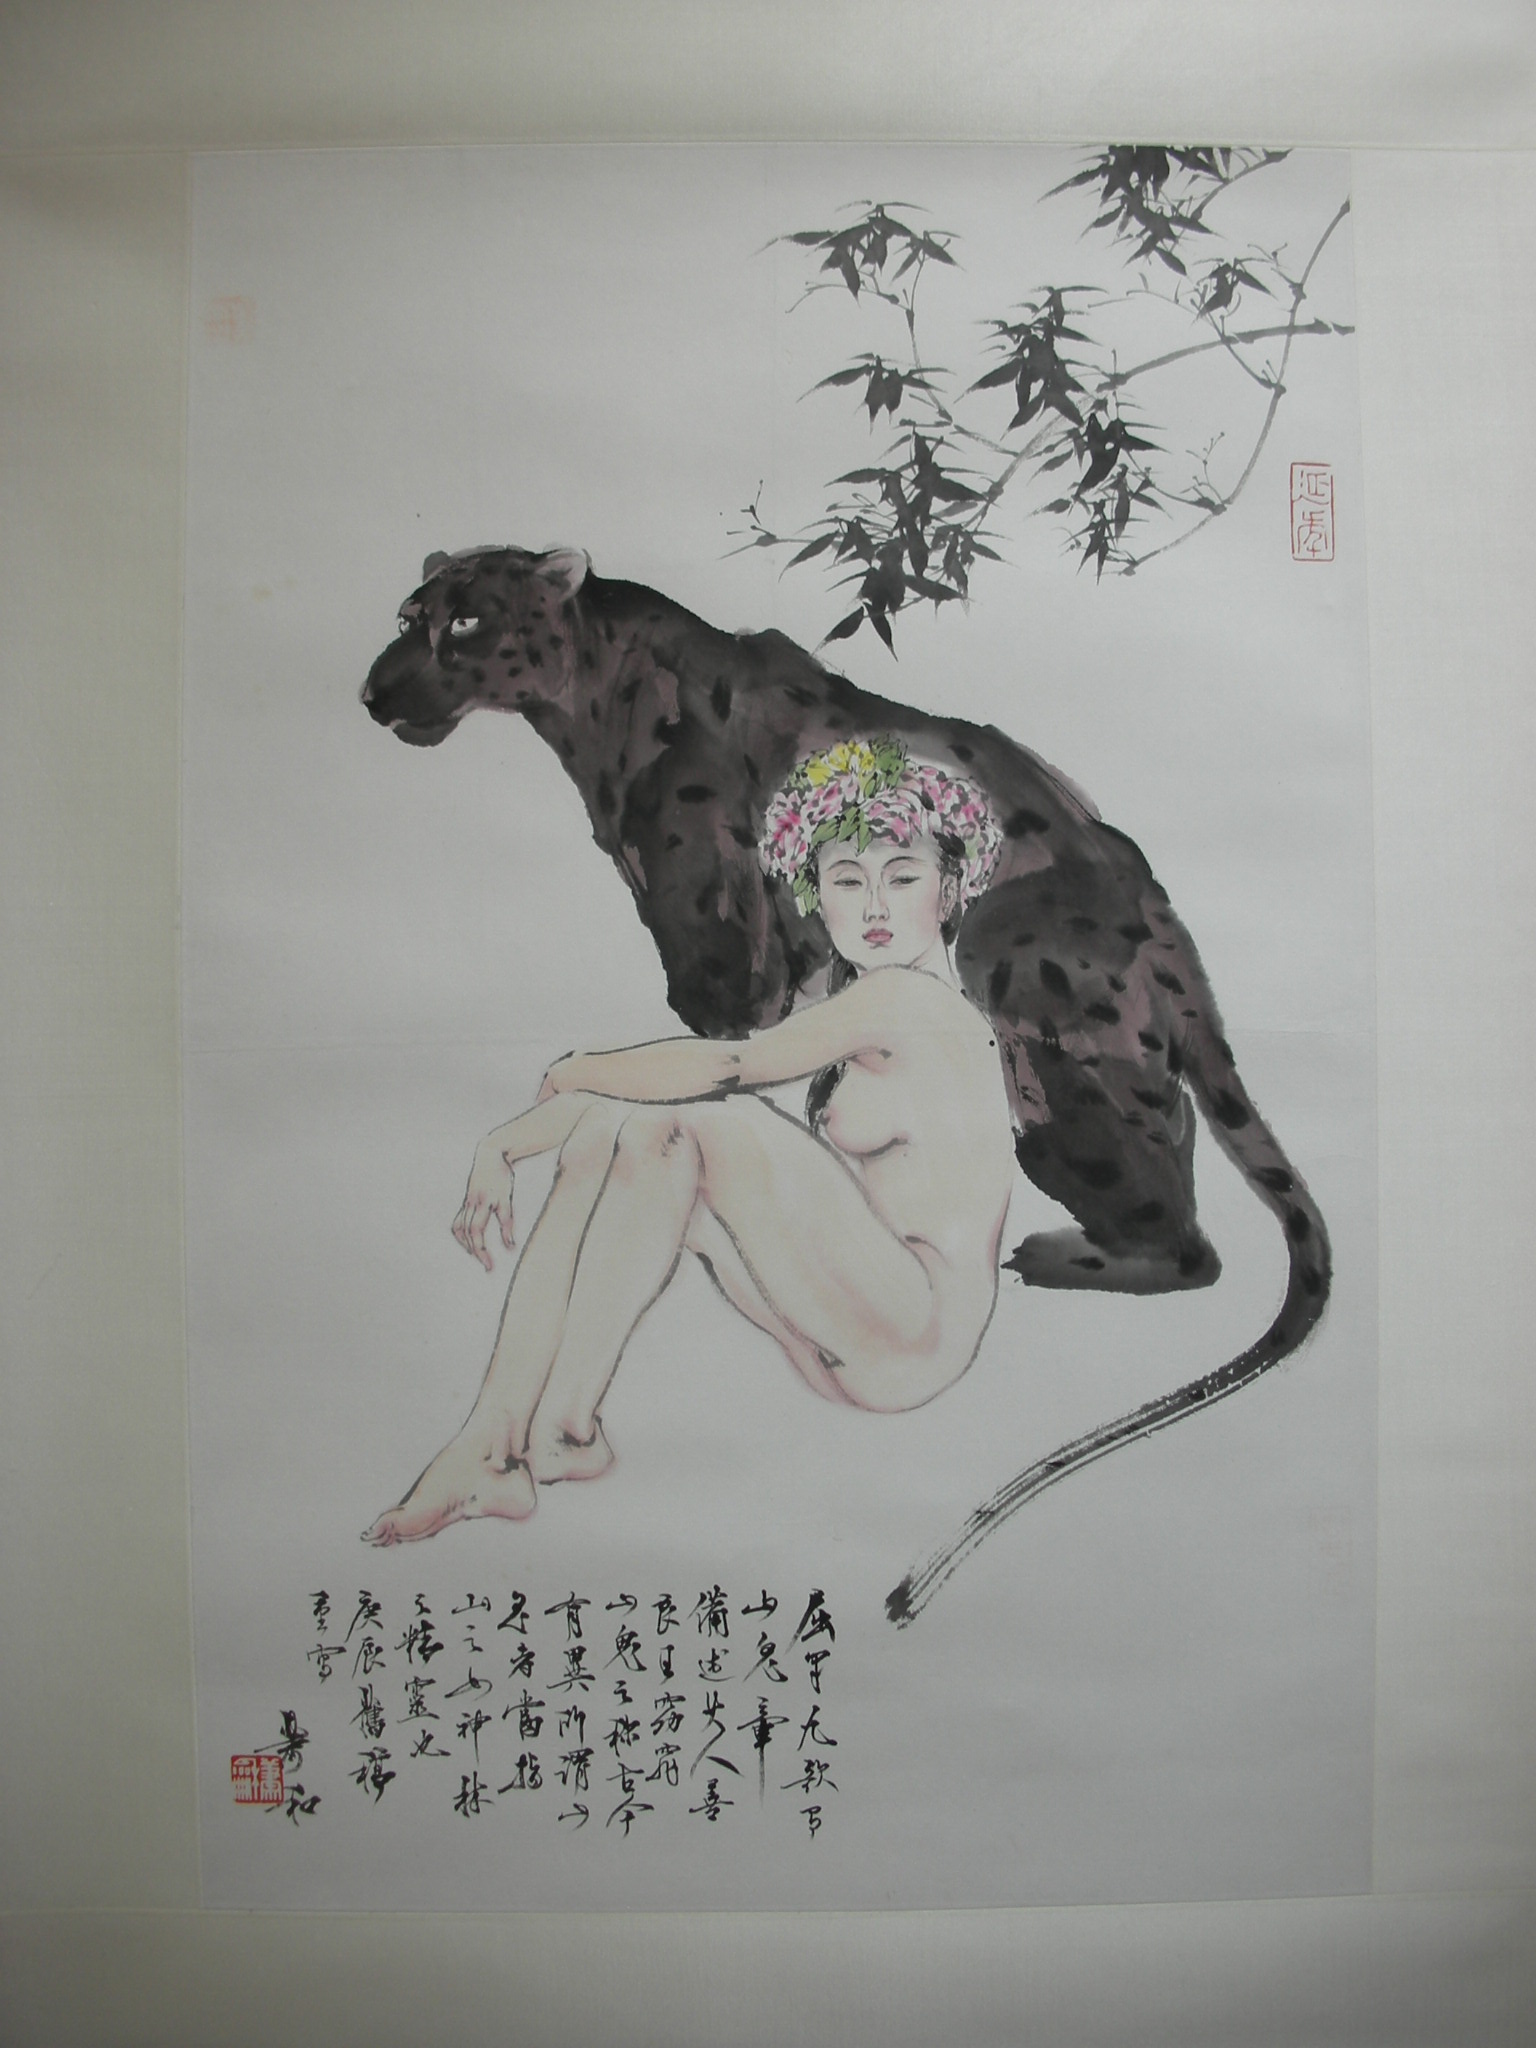 屈平九歌有
山鬼章
備述其人善
良且窈窕
山鬼之稱古今
有異所謂山
鬼者當指
山之女神林
之精靈也
庚辰舊稿
重寫
和
延年